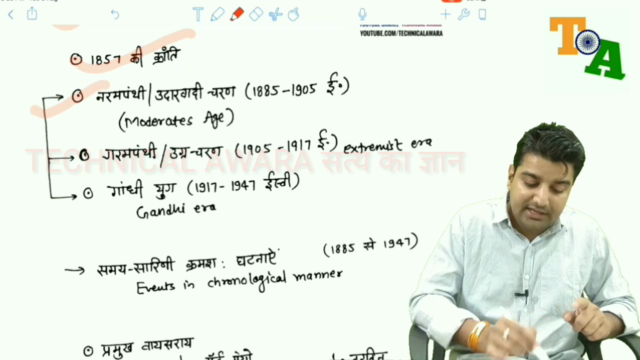 YOUTUBE.COM/TECHNICALAWARA
TOA
⊙ 1857 की क्रांति
⊙ नरमपंथी/उदारवादी चरण (1885-1905 ई०)
(Moderates Age)
⊙ गरमपंथी/उग्र-चरण (1905-1917 ई०) extremist era
TECHNICAL AWARA सत्य का ज्ञान
⊙ गांधी युग (1917-1947 ईस्वी)
Gandhi era
→ समय-सारिणी क्रमश: घटनाऐं (1885 से 1947)
Events in chronological manner
⊙ प्रमुख वायसराय